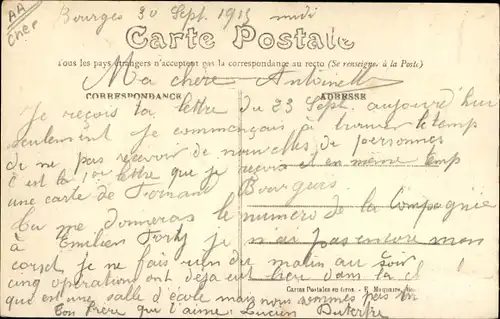 AA
Cher
Bourges 30 Sept. 1915 midi
Carte Postale
Tous les pays étrangers n'acceptent pas la correspondance au recto (Se renseigner à la Poste)
Ma chere Antoinette
CORRESPONDANCE ADRESSE
Je reçois ta lettre du 23 Sept. aujourd'hui
seulement je commençais à trouver le temp
de ne pas recevoir de nouvelles de personnes
c'est la lettre que je reçois et en meme temp
une carte de Bourgues
Tu me donneras le numéro de la Compagnie
à Emilien Forty je n'ai pas encore mon
je ne fais rien du matin au soir
cinq operations ont deja eut lieu dans la
qui est une salle d'école mais nous sommes pas
Ton frere qui t'aime Lucien Dutertre
Cartes Postales en Gros. - E. Maquaire,